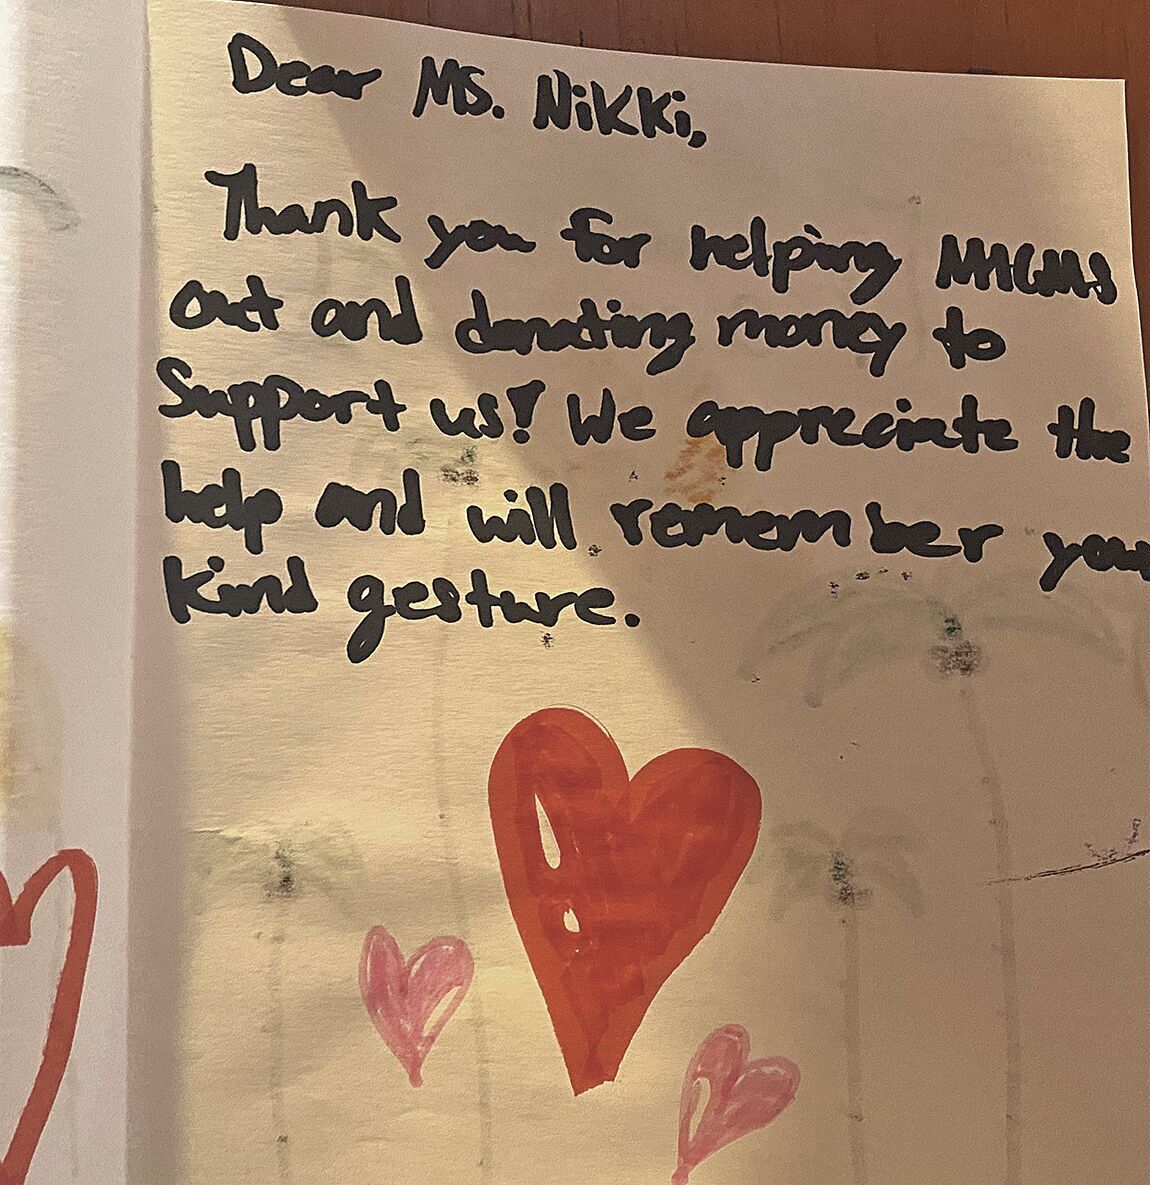 Dear Ms. Nikki,
Thank you for helping
out and donating money to
Support us! We appreciate the
help and will remember your
Kind gesture.